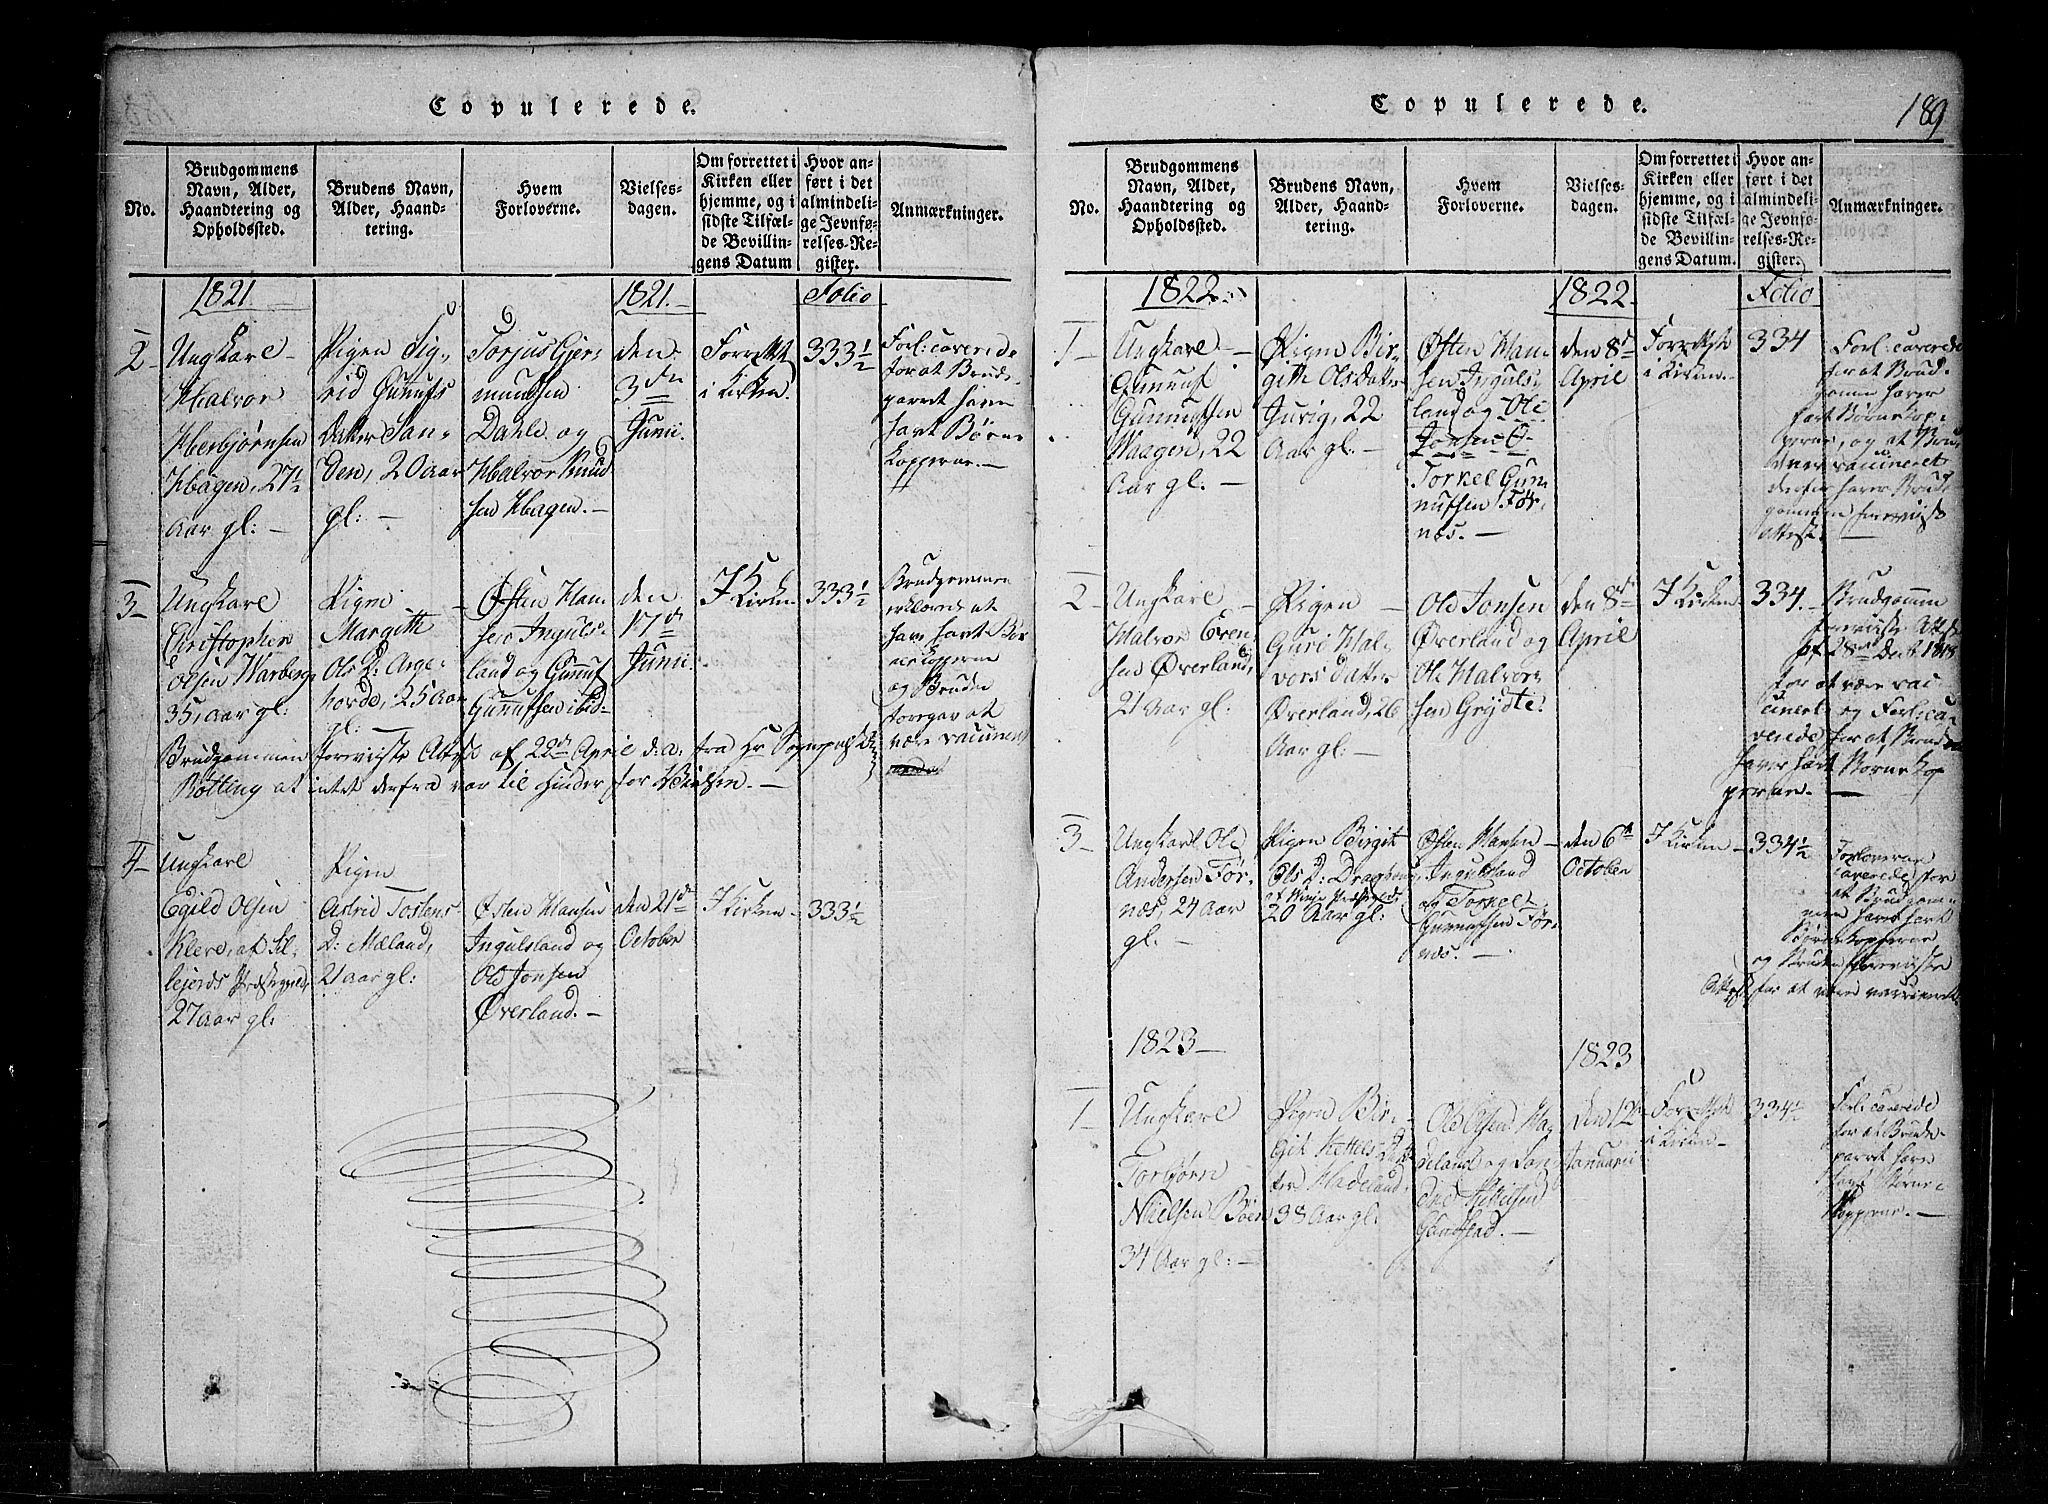 Copulerede.
No.
Brudgommens
Navn, Alder,
Haandtering og
Opholdssted.
Brudens Navn,
Alder, Haand-
tering.
Hvem
Forloverne.
Vielses-
dagen.
Om forrettet i
Kirken eller
hjemme, og i
sidste Tilfæl-
de Bevillin-
gens Datum
Hvor an-
ført i det
almindeli-
ge Jevnfø-
relses-Re-
gister.
Anmærkninger.
1821.
1821.
Folio
2
Ungkarl
Halvor
Herbjørnsen
Hagen, 27½
Aar gl:
Pigen Sig-
rid Gunufs
Datter San-
den, 20 aar
gl:
Torjus Gjer-
mundsen
Dahle og
Halvor Knud
sen Hagen.
den
3die
Junii.
Forrettet
i Kirken.
333½
Forl: caverede
for at Brude-
parret have
havt Børne
kopperne.
3
Ungkarl
Christopher
Olsen Warberg
35, aar gl:
Pigen
Margith
Ols D:
25 aar
gl:
Østen Han-
sen Inguls-
land og Gunuf
Gunufsen ibid
den
17de
Junii.
I Kirken
333½
Brudgommen
erklærede at
have havt Bør
nekopperne
og Bruden
foregav at
være vaccineret
Brudgommen foreviste Attest af 22de April d:a: fra Hr Sognepræst
Bötting at intet derfra var til Hinder for Vielsen.
4
Ungkarl
Egild Olsen
Klere, at Sil-
lejords Præstegield,
27 Aar gl:
Pigen
Astrid Tostens
D: Mæland,
21 aar gl:
Østen Hansen
Ingulsland og
Ole Jonsen
Øverland.
den 21de
October
I Kirken
333½
Copulerede.
189
No.
Brudgommens
Navn, Alder,
Haandtering og
Opholdssted.
Brudens Navn,
Alder, Haand-
tering.
Hvem
Forloverne.
Vielses-
dagen.
Om forrettet i
Kirken eller
hjemme, og i
sidste Tilfæl-
de Bevillin-
gens Datum.
Hvor an-
ført i det
almindeli-
ge Jevnfø-
relses-Re-
gister.
Anmærkninger.
1822
1822
Folio
1
Ungkarl
Gunnuf
Gunnufsen
Waagen, 22
Aar gl:
Pigen Bir-
gith Olsdatter
Juvig, 22
Aar gl:
Østen Han-
sen Inguls-
land og Ole
Jonsen Ø-
Torkel Gun
nufsen Før-
næs.
den 8de
April
Forrettet
i Kirken
334
Forl: caverede
for at Brud-
gomme haver
havt Børnekop-
perne, og at Bru-
den er vaccineret
derfor haver Brud
gommen foreviist
Attest.
2
Ungkarl
Halvor Even
sen Øverland,
21 Aar gl:
Pigen
Guri Hal-
vors datter
Øverland, 26
Aar gl:
Ole Jonsen
Øverland og
Ole Halvor-
sen Grydte.
den 8de
April
I Kirken
334.
Brudgomme
foreviiste Attest
af 28de Decb. 1818
for at være vac
cineret
og Forl: ca-
verede for at Bruden
haver havt Børnekop
perne.
3
Ungkarl Ole
Andersen Før-
næs, 24 Aar
gl.
Pigen Birgit
Ols D:
af Vinje Præstegield
20 Aar gl:
Østen Hansen
Ingulsland
og Torkel
Gunnufsen Før-
næs.
den 6te
October
I Kirken
334½
Forloverne
caverede for
at Brudgom-
men havde havt
Børnekopperne
og Bruden foreviste
Attest for at være vaccineret
1823
1823
1
Ungkarl
Torbjørn
Nielsen Bøen
34 Aar gl:
Pigen Bir-
git Kettels Dat-
ter Hadeland,
38 Aar gl:
Ole Olsen Ha-
deland og
den 12te
Januarii
Forrettet
i Kirken
334½
Forl: caverede
for at Brude-
parret have
havt Børne-
kopperne.